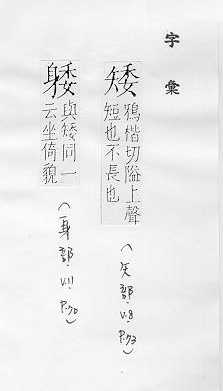 字彙
矮 鴉楷切隘上聲
短也不長也
(矢部. V.8. P.73)
躷 與矮同一
云坐倚貌
(身部. V.11. P.70)